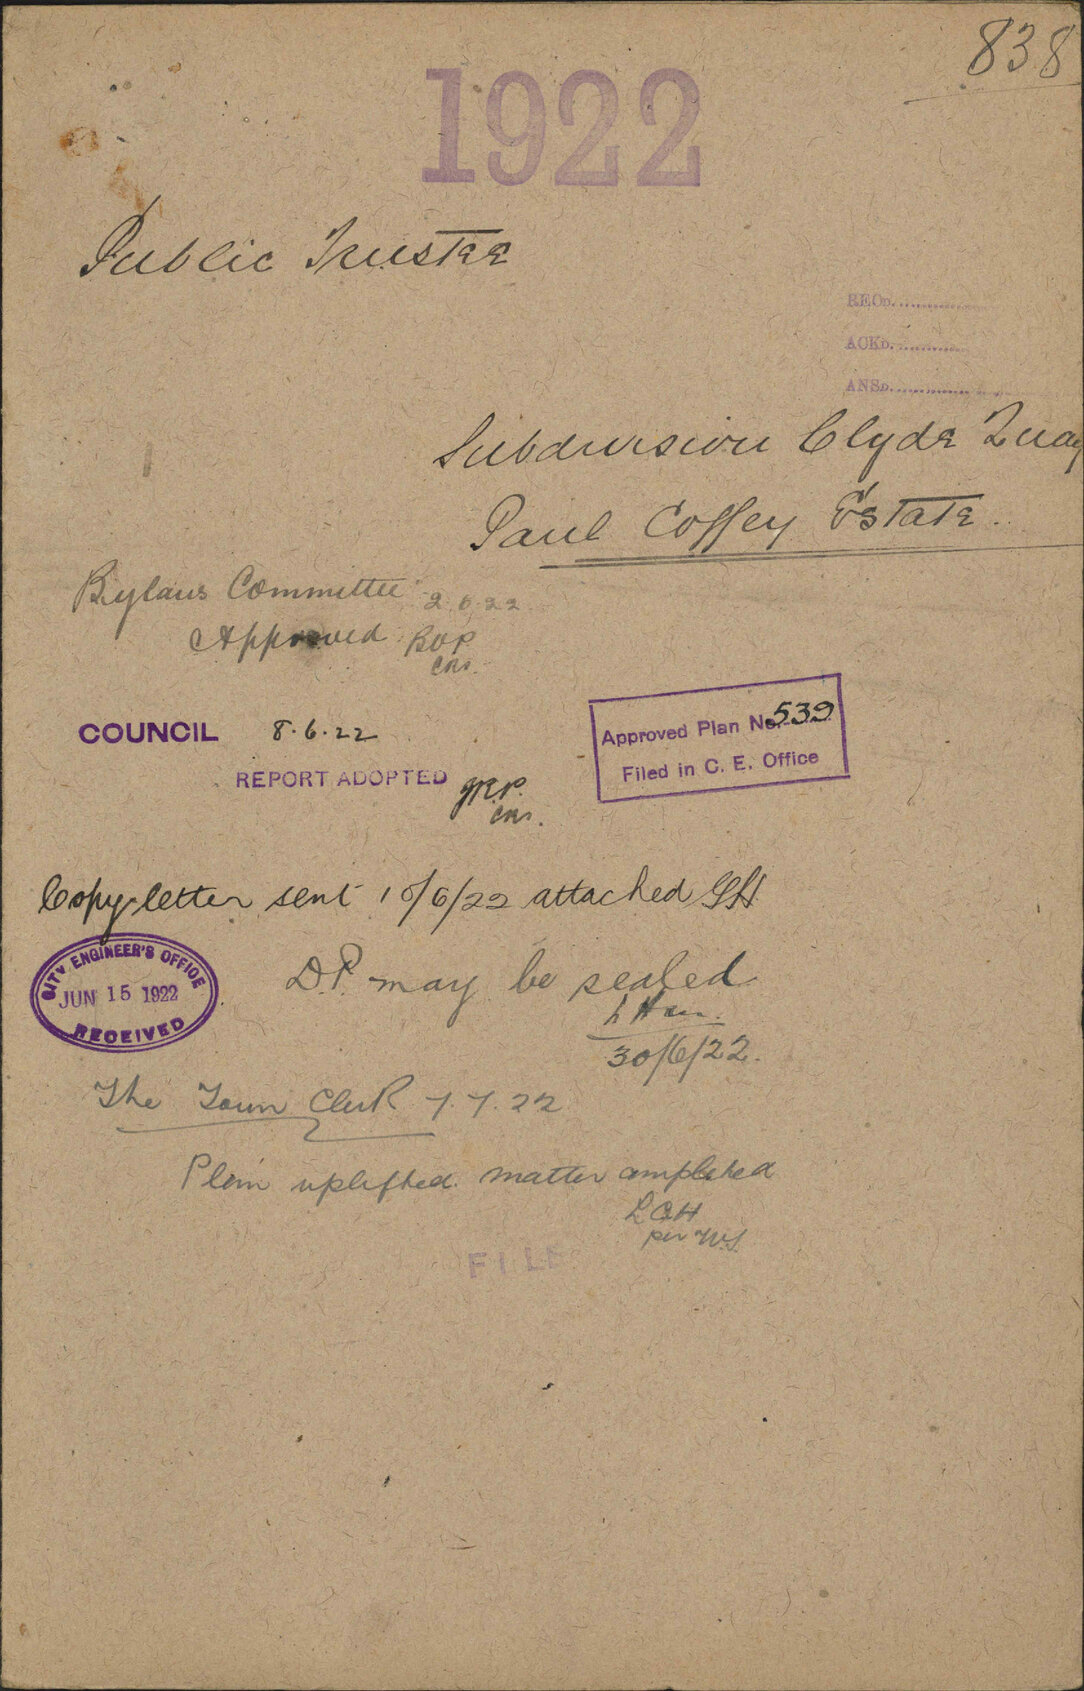 838
1922
Public Trustee
RECD.
ACKD.
ANSD.
Subdivision Clyde Quay
Paul Coffey Estate.
Bylaws Committee 2.6.22
Approved
COUNCIL 8.6.22
REPORT ADOPTED
Approved Plan No. 539
Filed in C. E. Office
Copy letter sent 10/6/22 attached
CITY ENGINEER'S OFFICE
JUN 15 1922
RECEIVED
D.P. may be sealed
30/6/22.
The Town Clerk 7.7.22
Plan uplifted. matter completed
FILE